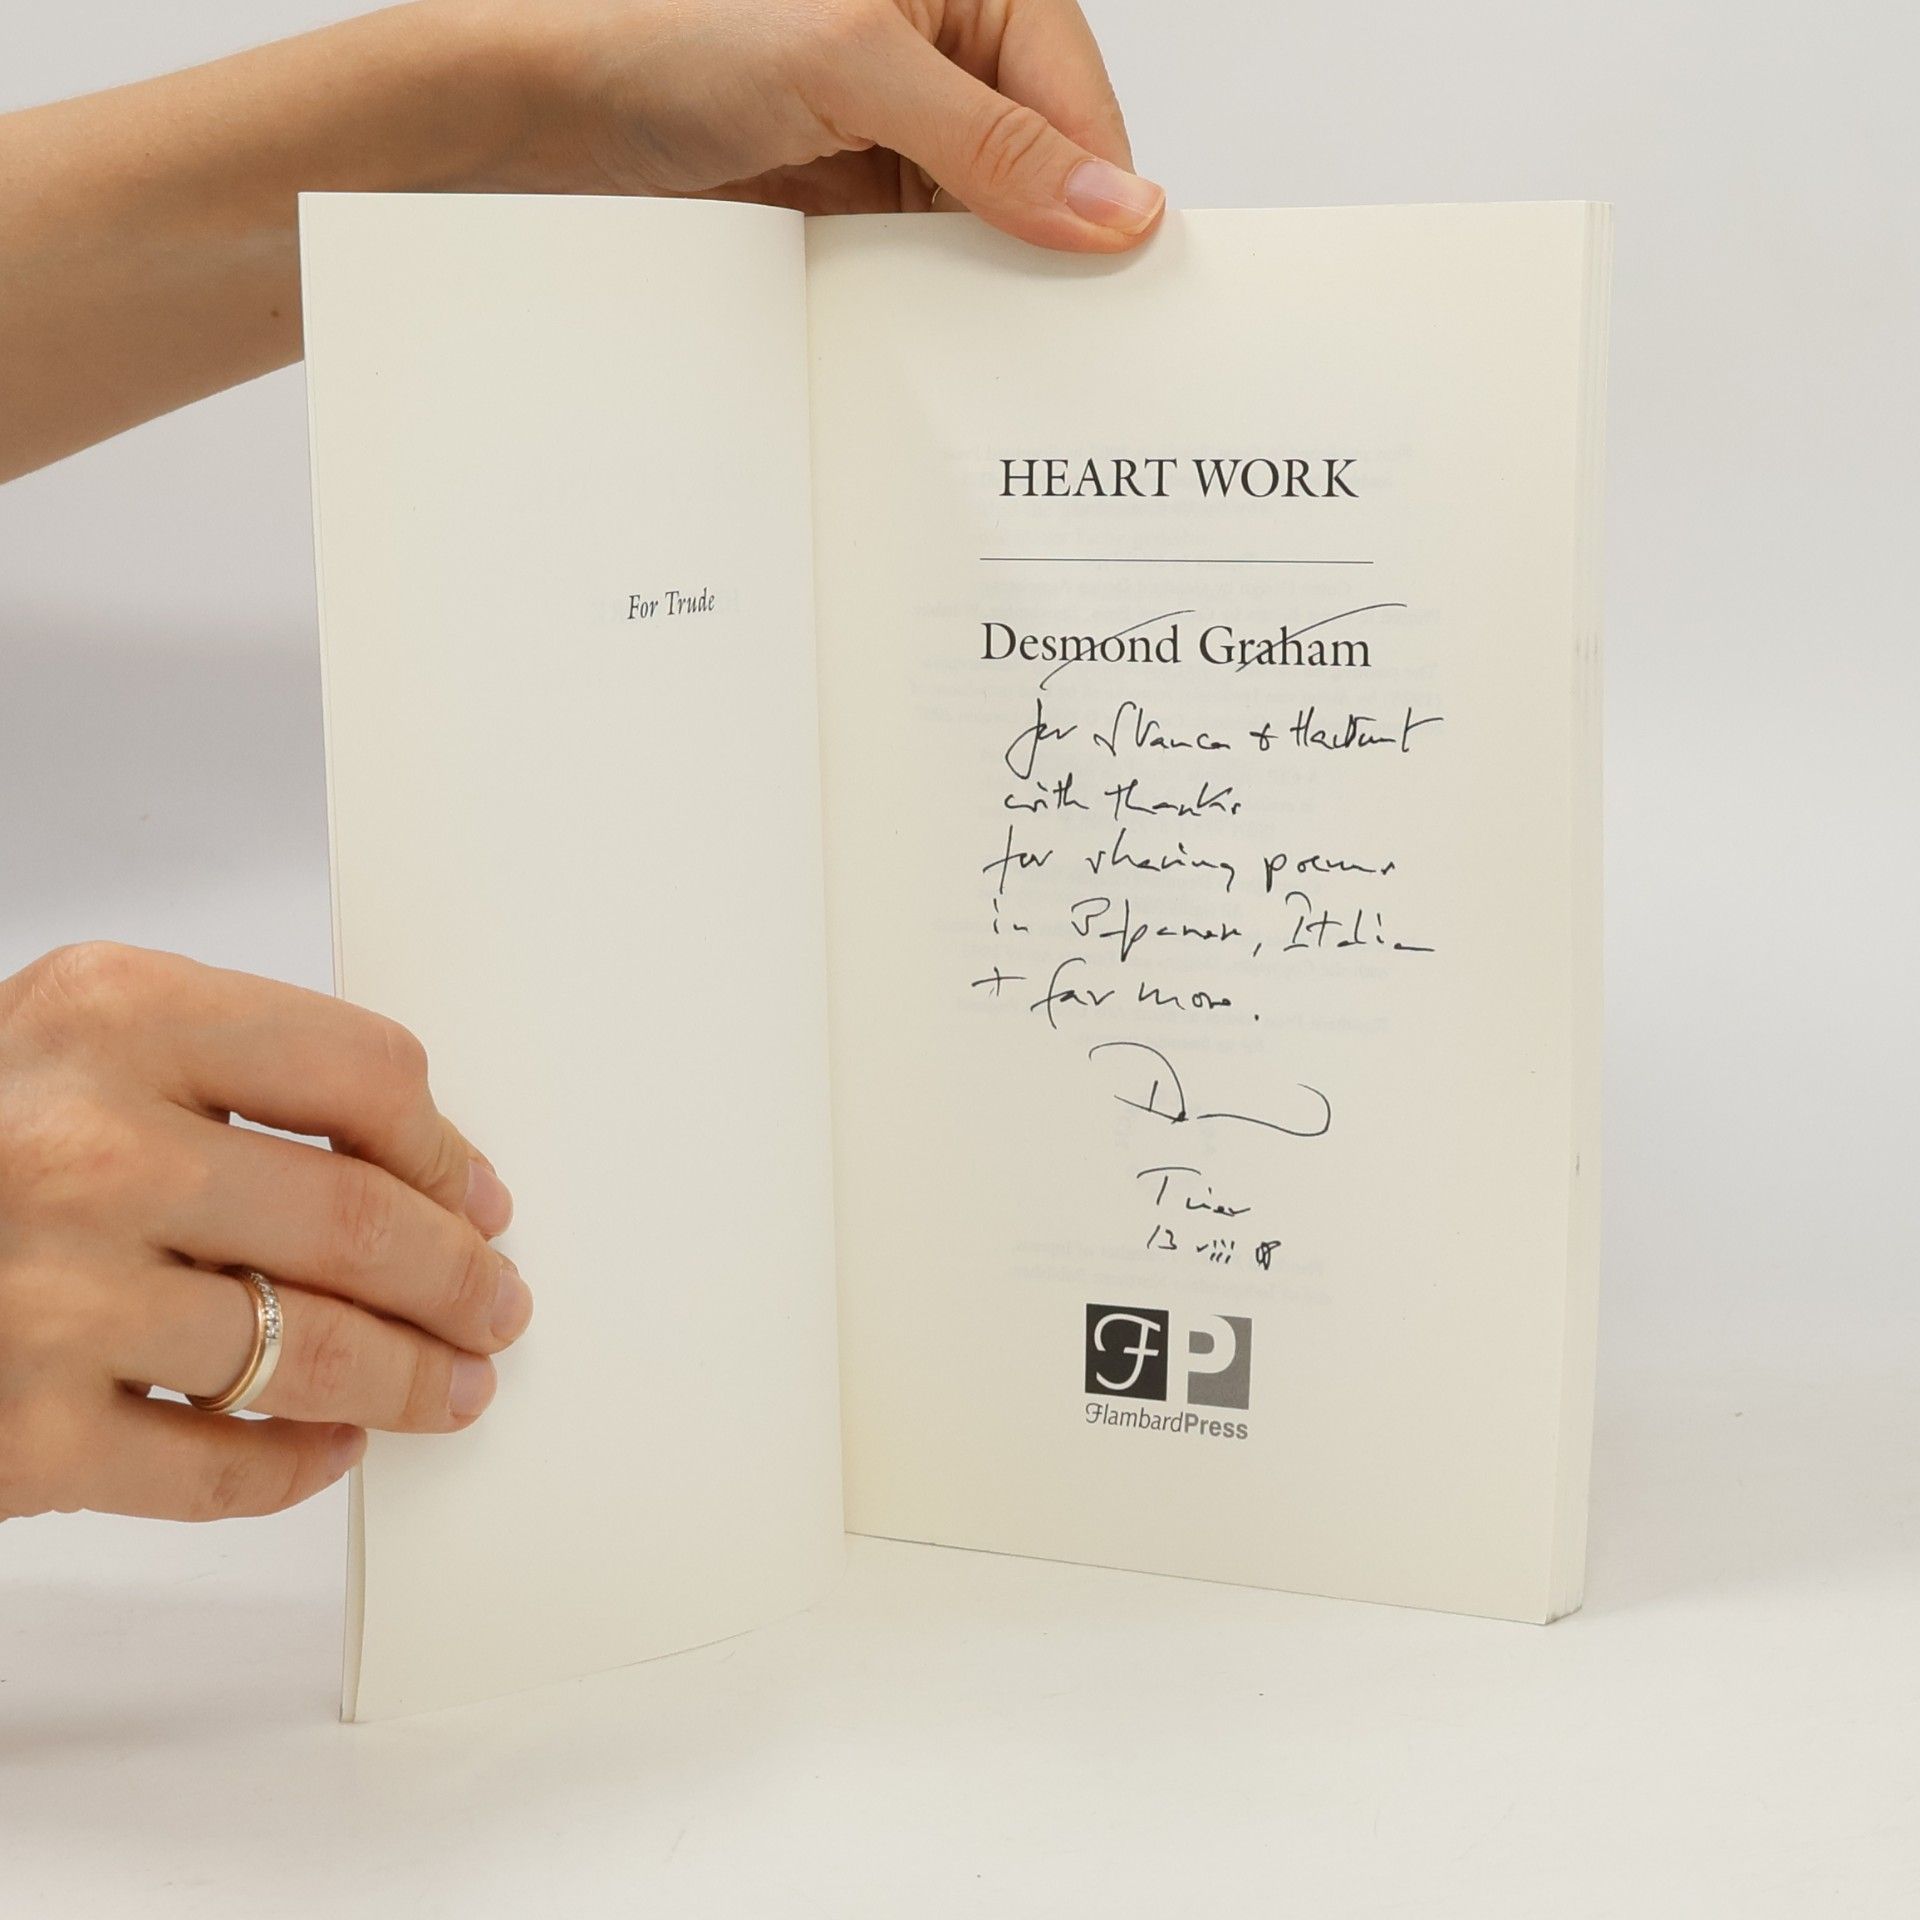 For Trude
HEART WORK
Desmond Graham
for & Hartmut
with thanks
for sharing poems
in Italian
+ far more.
Trier
13 viii
FP
FlambardPress